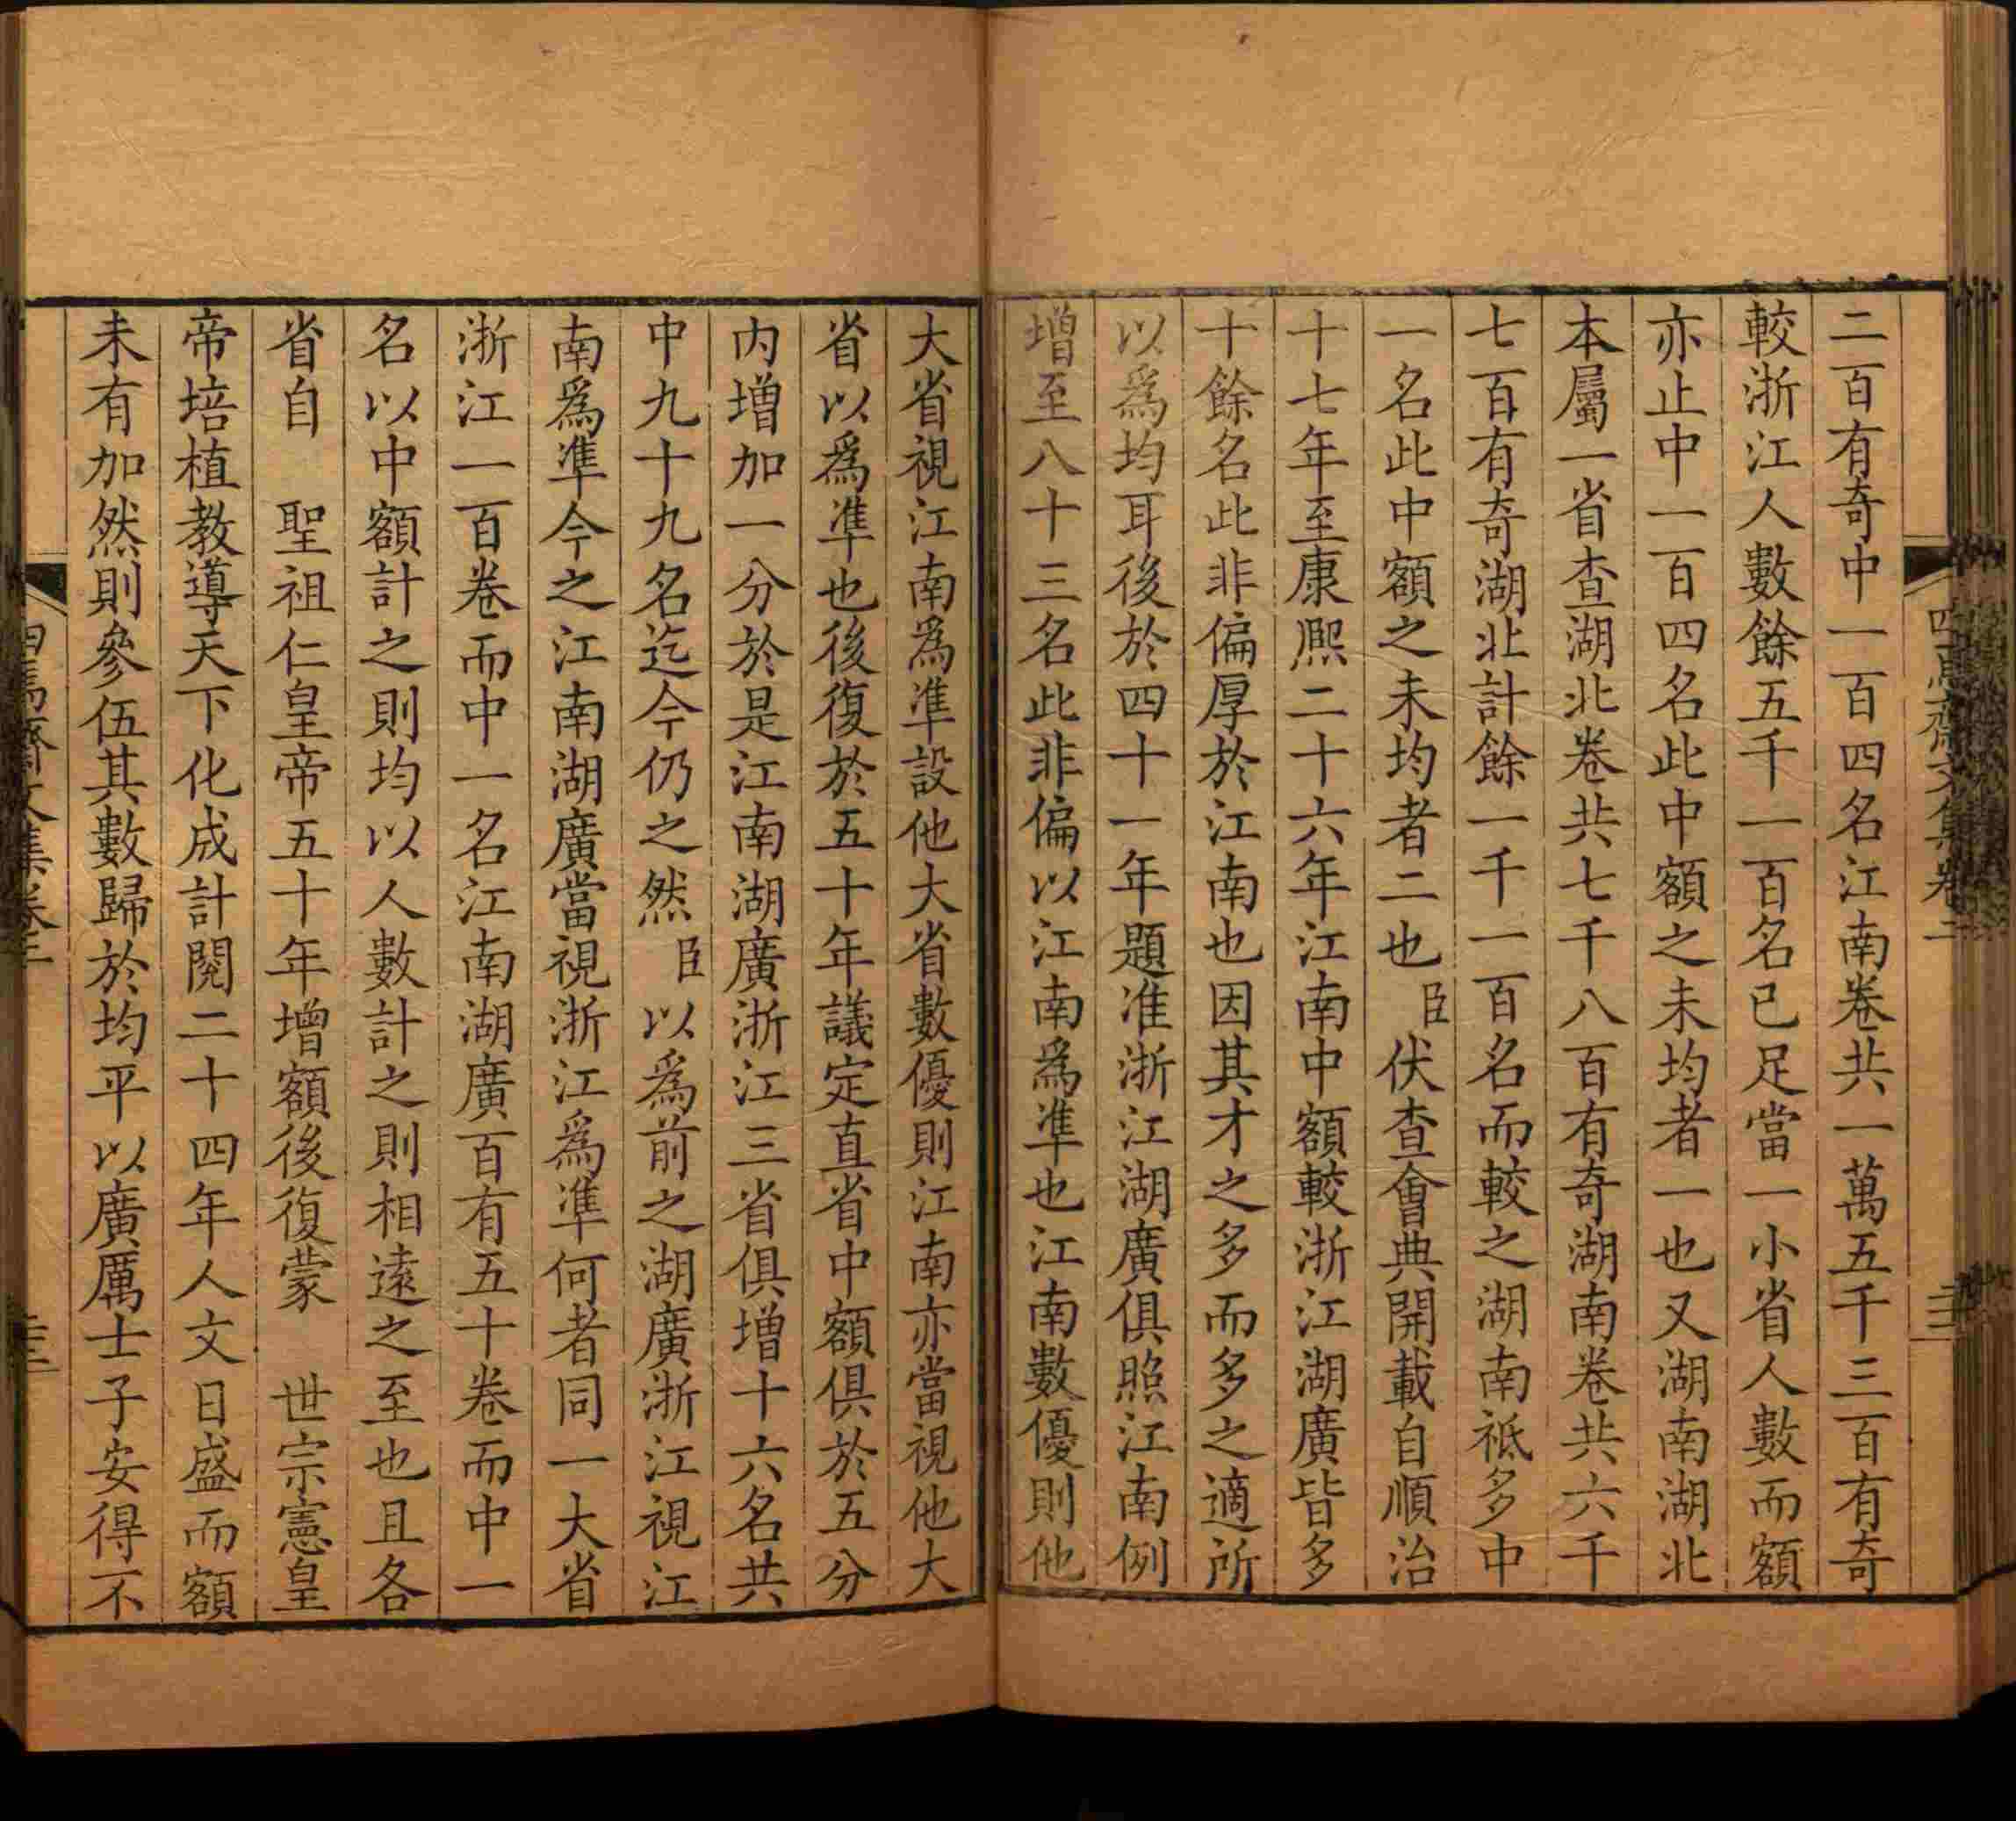 二百有奇中一百四名江南卷共一萬五千三百有奇
較浙江人數餘五千一百名已足當一小省人數而額
亦止中一百四名此中額之未均者一也又湖南湖北
本屬一省查湖北卷共七千八百有奇湖南卷共六千
七百有奇湖北計餘一千一百名而較之湖南祗多中
一名此中額之未均者二也臣伏查會典開載自順治
十七年至康熈二十六年江南中額較浙江湖廣皆多
十餘名此非偏厚於江南也因其才之多而多之適所
以爲均耳後於四十一年題准浙江湖廣俱照江南例
增至八十三名此非偏以江南爲準也江南數優則他
大省視江南爲準設他大省數優則江南亦當視他大
省以爲準也後復於五十年議定直省中額俱於五分
内增加一分於是江南湖廣浙江三省俱增十六名共
中九十九名迄今仍之然臣以爲前之湖廣浙江視江
南爲準今之江南湖廣當視浙江爲準何者同一大省
浙江一百卷而中一名江南湖廣百有五十卷而中一
名以中額計之則均以人數計之則相遠之至也且各
省自 聖祖仁皇帝五十年增額後復蒙 世宗憲皇
帝培植教導天下化成計閱二十四年人文日盛而額
未有加然則參伍其數歸於均平以廣厲士子安得不